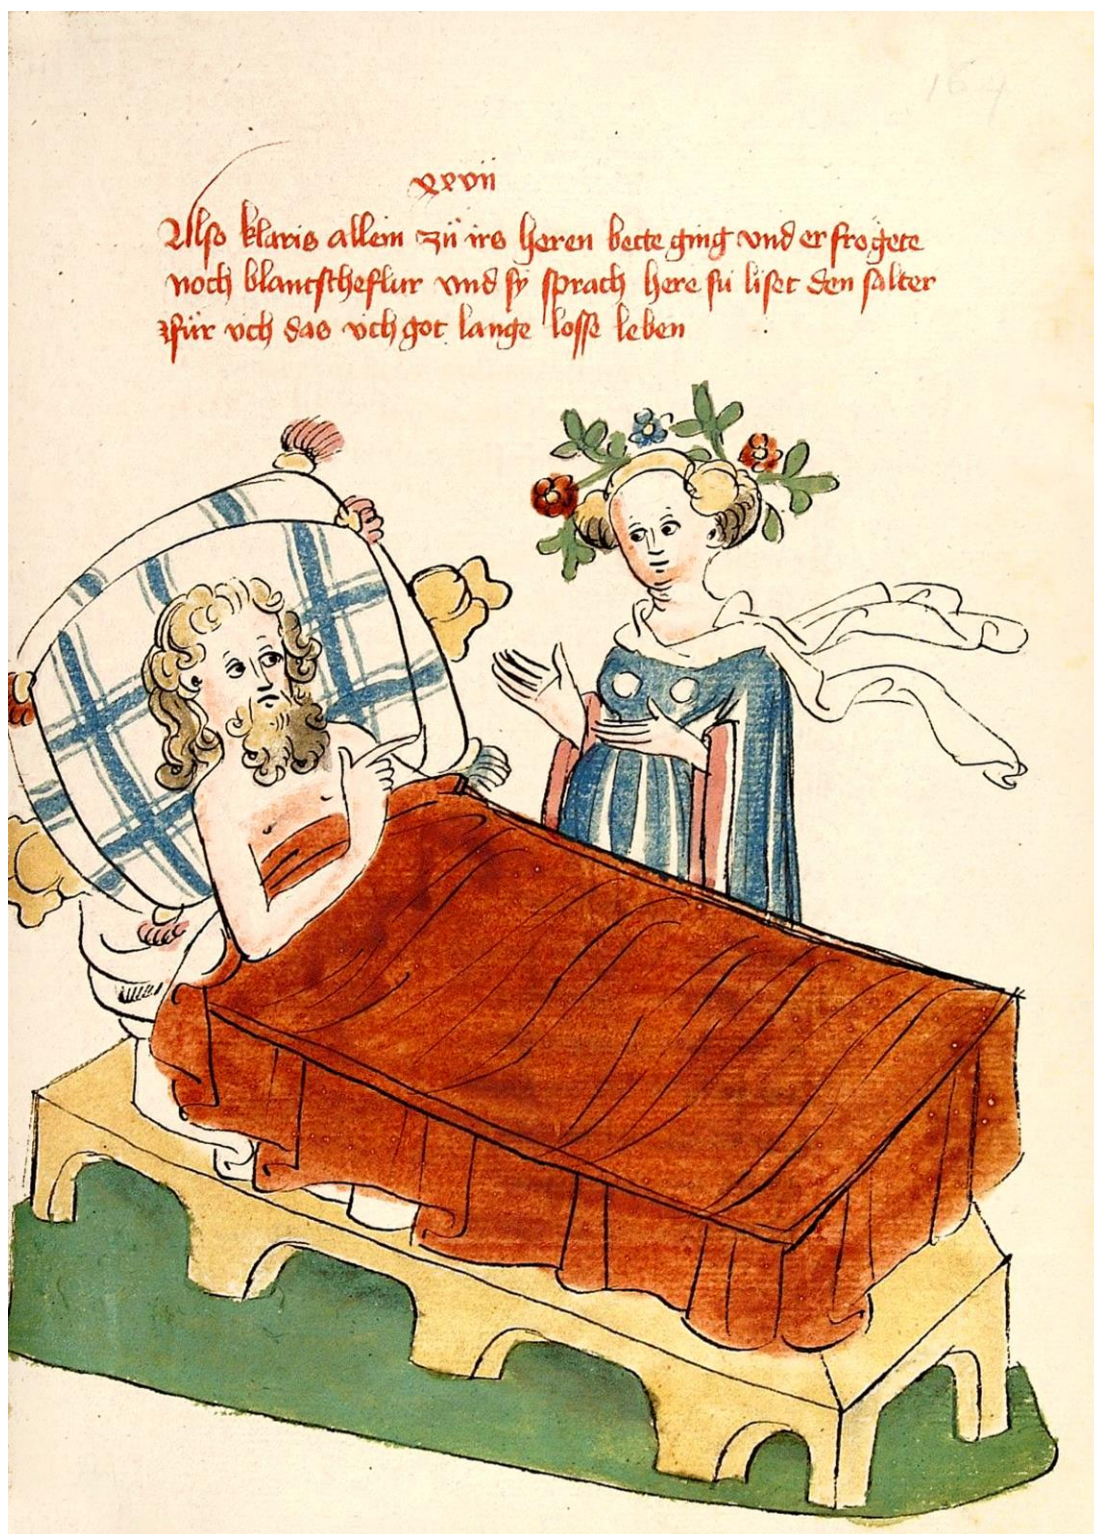 164
xxvii
Also klaris allein zü irs heren bette ging vnd er frogete
noch blantscheflur vnd sy sprach here sü liset den salter
für vch das vch got lange losse leben